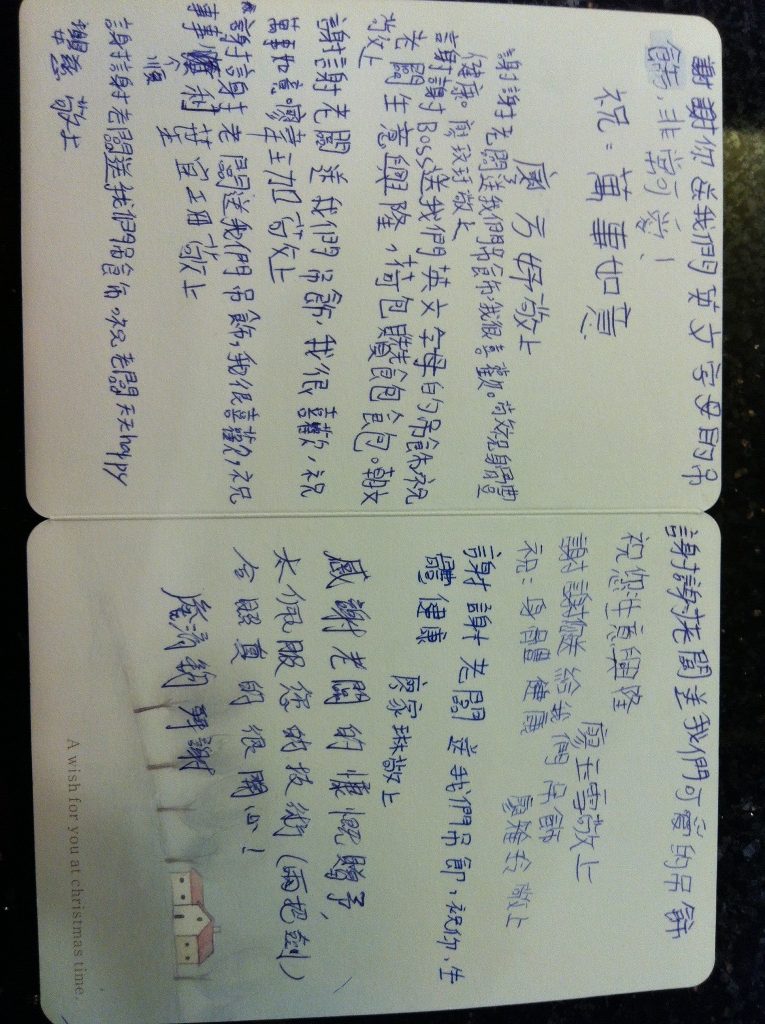 謝謝你送我們英文字母的吊
飾，非常可愛！
祝：萬事如意
廖乃妤敬上
謝謝老闆送我們吊飾，我很喜歡。祝身體
健康。廖玟玬敬上
謝謝Boss送我們英文字母的吊飾祝
老闆生意興隆，荷包賺飽飽。
敬上
謝謝老闆送我們吊飾，我很喜歡，祝
萬事如意。廖聿加敬上
謝謝老闆送我們吊飾，我很喜歡，祝
事事順利
順
敬上
謝謝老闆送我們吊飾。祝老闆天天happy
敬上
謝謝老闆送我們可愛的吊飾
祝您生意興隆
廖玉雪敬上
謝謝送給我們吊飾
祝：身體健康
敬上
謝謝老闆送我們吊飾，祝你，生
體健康
廖家珠敬上
感謝老闆的慷慨贈予，
太佩服您的技術（兩把劍）
合照真的很開心！
A wish for you at christmas time.